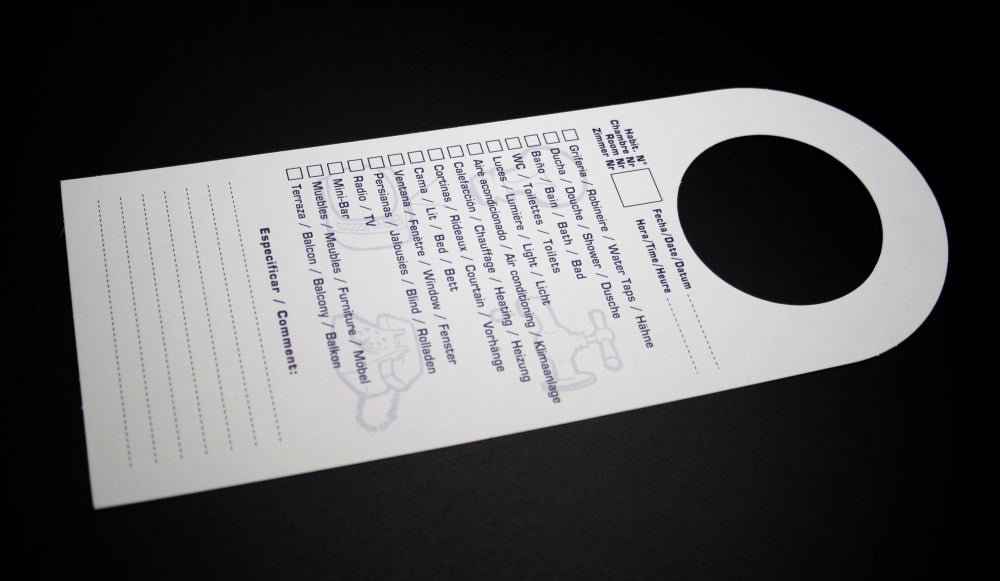 Habit. N°
Chambre Nr
Room Nr
Zimmer Nr
Fecha/Date/Datum
Hora/Time/Heure
Grifería / Robineire / Water Taps / Hähne
Ducha / Douche / Shower / Dusche
Baño / Bain / Bath / Bad
WC / Toilettes / Toilets
Luces / Lumière / Light / Licht
Aire acordicionado / Air conditioning / Klimaanlage
Calefacción / Chauffage / Heeting / Heizung
Cortinas / Rideaux / Courtain / Vorhänge
Cama / Lit / Bed / Bett
Ventana / Fenètre / Window / Fenster
Persianas / Jalousies / Blind / Rolladen
Radio / TV
Mini-Bar
Muebles / Meubles / Furniture / Möbel
Terraza / Balcon / Balcony / Balkon
Especificar / Comment: